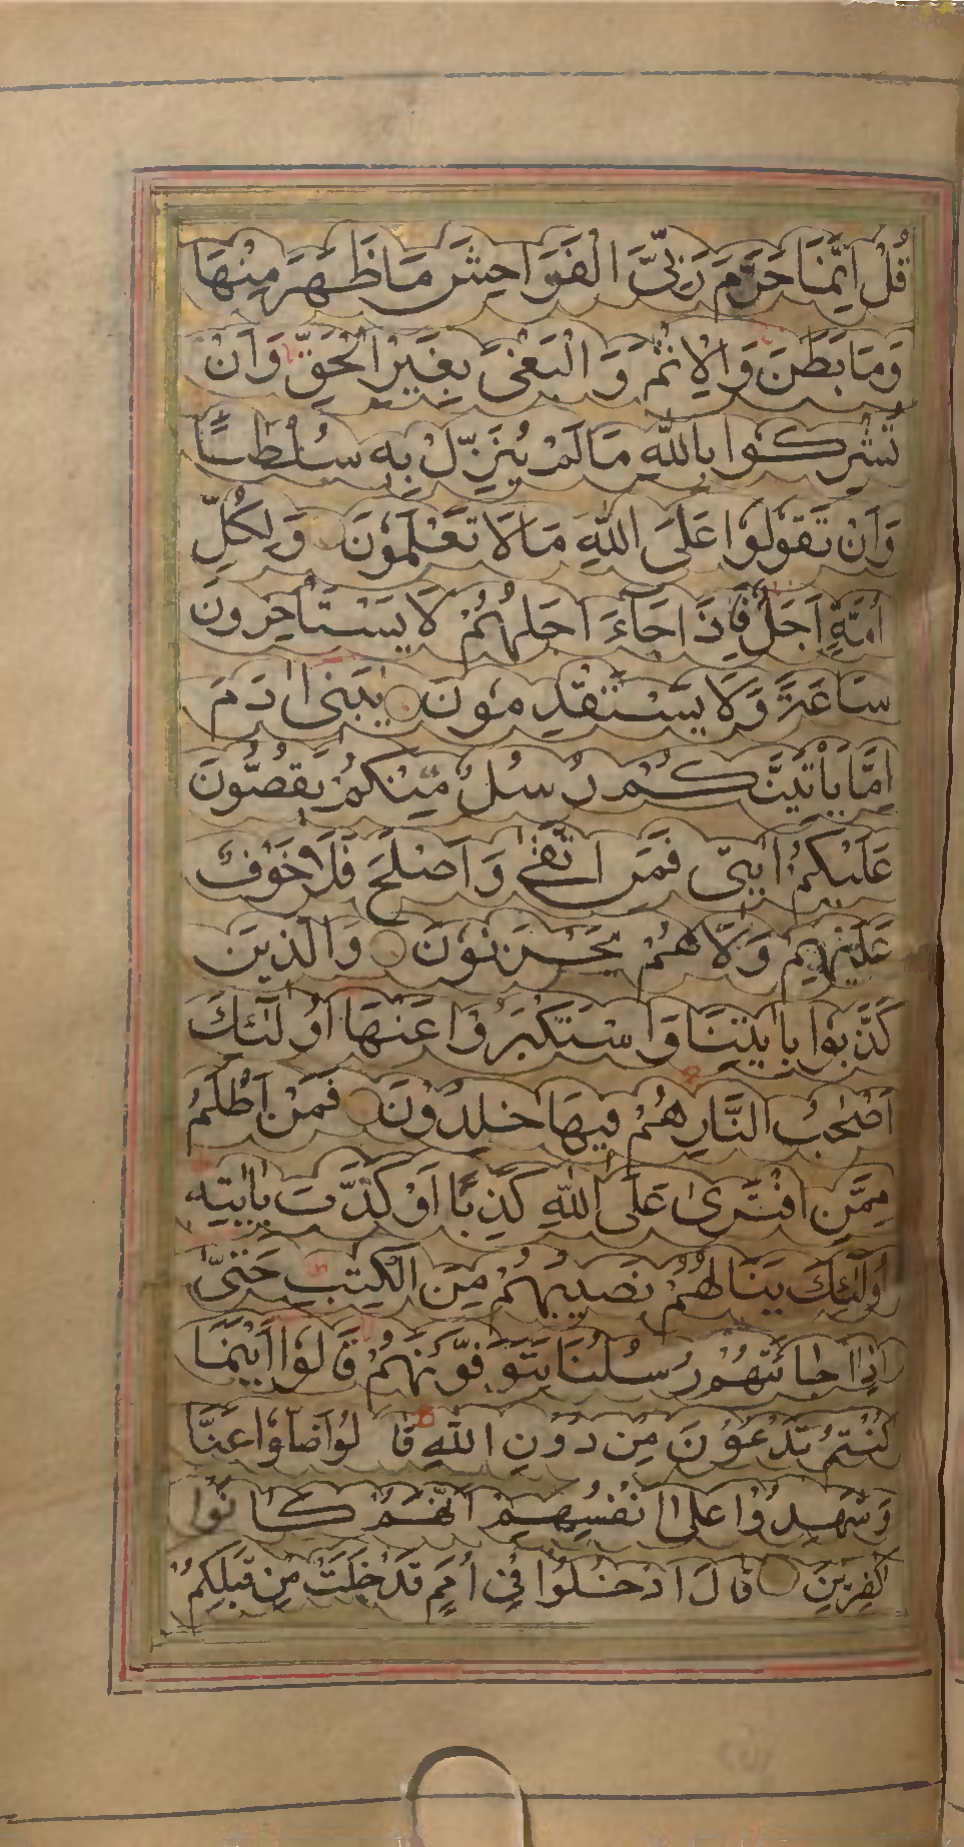 قُلْ اِنَّمَا حَرَّمَ رَبِّیَ الْفَوَاحِشَ مَا ظَهَرَ مِنْهَا
وَمَا بَطَنَ وَالْاِثْمَ وَالْبَغْیَ بِغَیْرِ الْحَقِّ وَاَنْ
تُشْرِكُوا بِاللّٰهِ مَا لَمْ یُنَزِّلْ بِهٖ سُلْطٰنًا
وَاَنْ تَقُولُوا عَلَی اللّٰهِ مَا لَا تَعْلَمُونَ وَلِكُلِّ
اُمَّةٍ اَجَلٌ فَاِذَا جَآءَ اَجَلُهُمْ لَا یَسْتَأْخِرُونَ
سَاعَةً وَلَا یَسْتَقْدِمُونَ یٰبَنِیْ اٰدَمَ
اِمَّا یَأْتِیَنَّكُمْ رُسُلٌ مِّنْكُمْ یَقُصُّونَ
عَلَیْكُمْ اٰیٰتِی فَمَنِ اتَّقٰی وَاَصْلَحَ فَلَا خَوْفٌ
عَلَیْهِمْ وَلَا هُمْ یَحْزَنُونَ وَالَّذِینَ
كَذَّبُوا بِاٰیٰتِنَا وَاسْتَكْبَرُوْا عَنْهَا اُولٰٓئِكَ
اَصْحٰبُ النَّارِ هُمْ فِیهَا خٰلِدُوْنَ فَمَنْ اَظْلَمُ
مِمَّنِ افْتَرٰی عَلَی اللّٰهِ كَذِبًا اَوْ كَذَّبَ بِاٰیٰتِهٖ
اُولٰٓئِكَ یَنَالُهُمْ نَصِیبُهُمْ مِنَ الْكِتٰبِ حَتّٰیٓ
اِذَا جَائَتْهُمْ رُسُلُنَا یَتَوَفَّوْنَهُمْ قَالُوْا اَیْنَمَا
كُنْتُمْ تَدْعُوْنَ مِنْ دُوْنِ اللّٰهِ قَالُوْا ضَلُّوْا عَنَّا
وَشَهِدُوْا عَلٰی اَنْفُسِهِمْ اَنَّهُمْ كَانُوا
كٰفِرِیْنَ قَالَ ادْخُلُوْا فِیْ اُمَمٍ قَدْ خَلَتْ مِنْ قَبْلِكُمْ